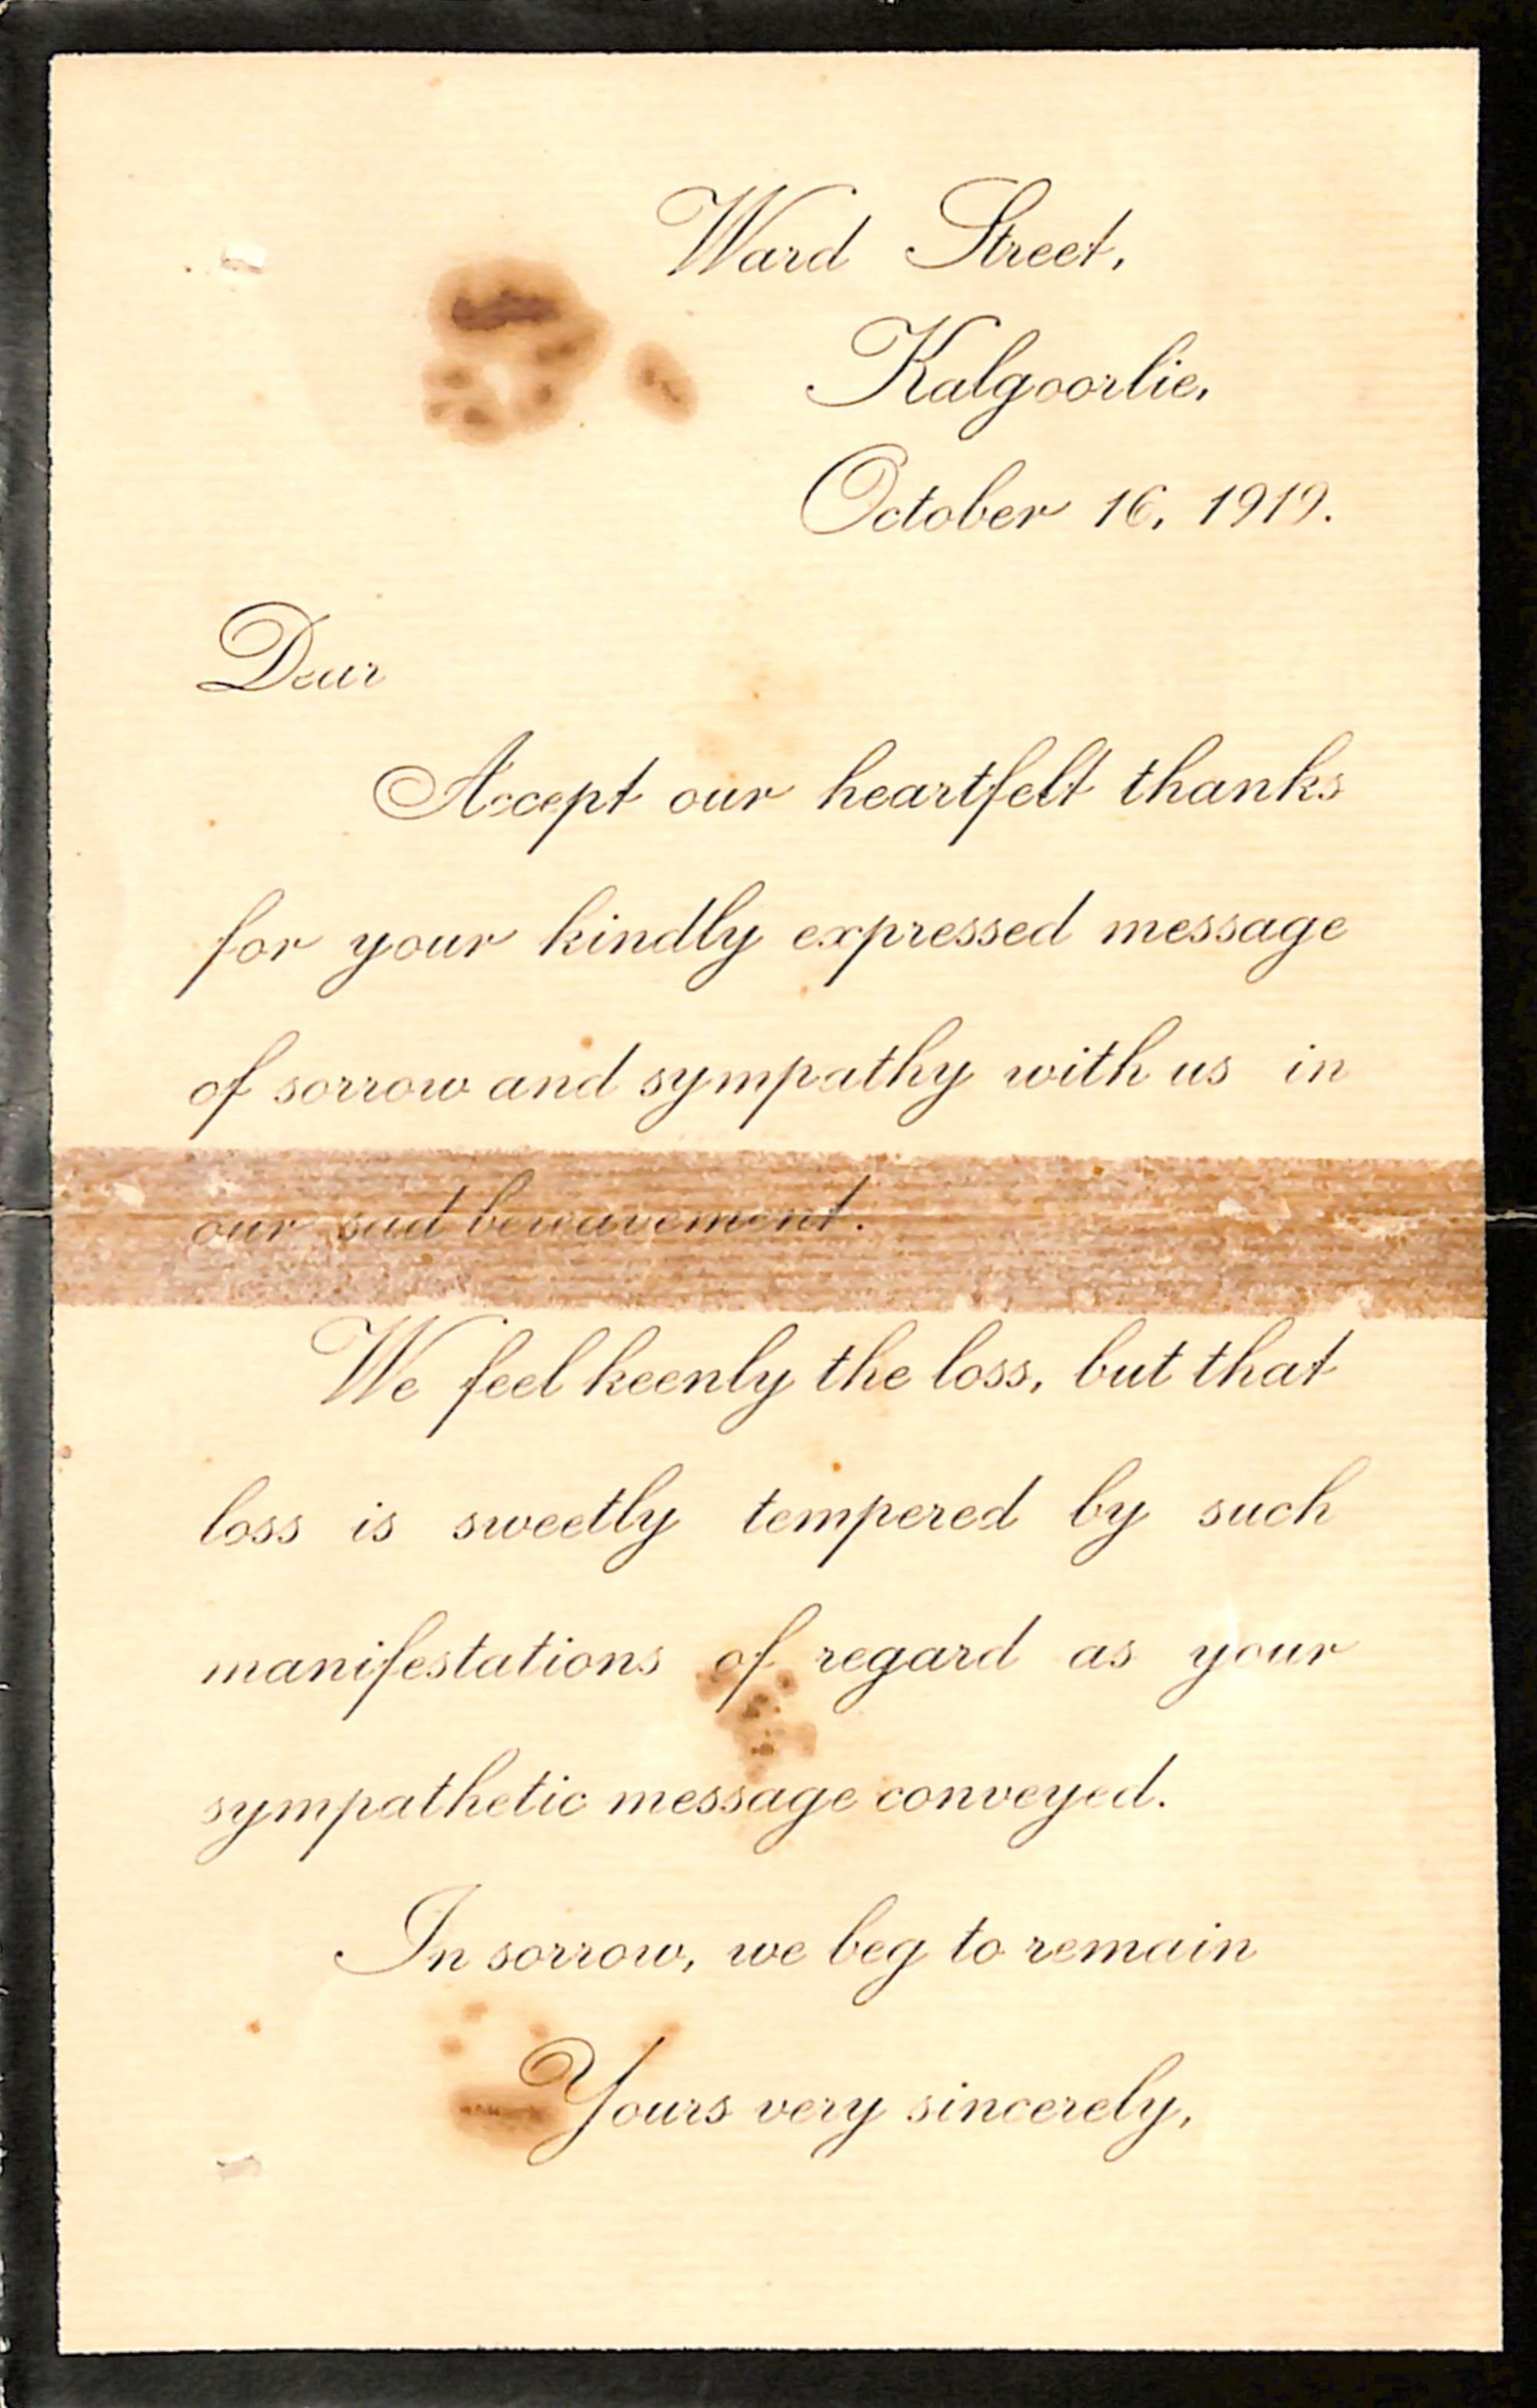 Ward Street,
Kalgoorlie,
October 16, 1919.
Dear
Accept our heartfelt thanks
for your kindly expressed message
of sorrow and sympathy with us in
our sad bereavement.
We feel keenly the loss, but that
loss is sweetly tempered by such
manifestations of regard as your
sympathetic message conveyed.
In sorrow, we beg to remain
Yours very sincerely,